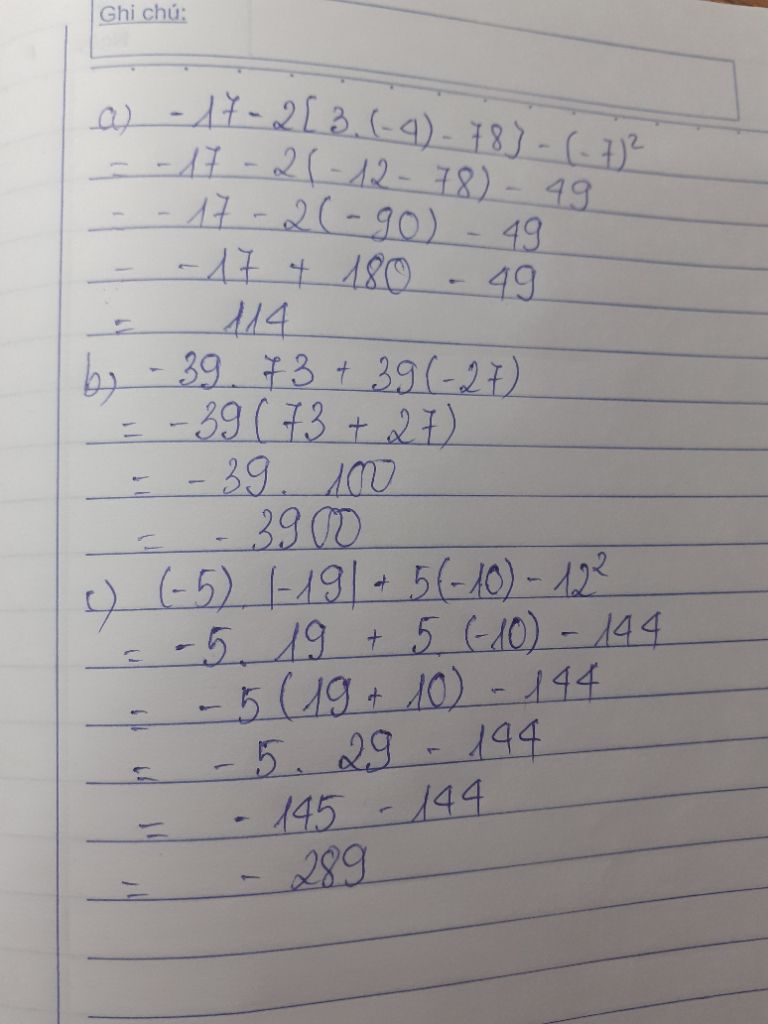 Ghi chú:
a) -17 - 2[3.(-4) - 78] - (-7)²
= -17 - 2(-12 - 78) - 49
= -17 - 2(-90) - 49
= -17 + 180 - 49
= 114
b) -39. 73 + 39(-27)
= -39(73 + 27)
= -39. 100
= -3900
c) (-5). |-19| + 5(-10) - 12²
= -5. 19 + 5. (-10) - 144
= -5(19 + 10) - 144
= -5. 29 - 144
= -145 - 144
= -289